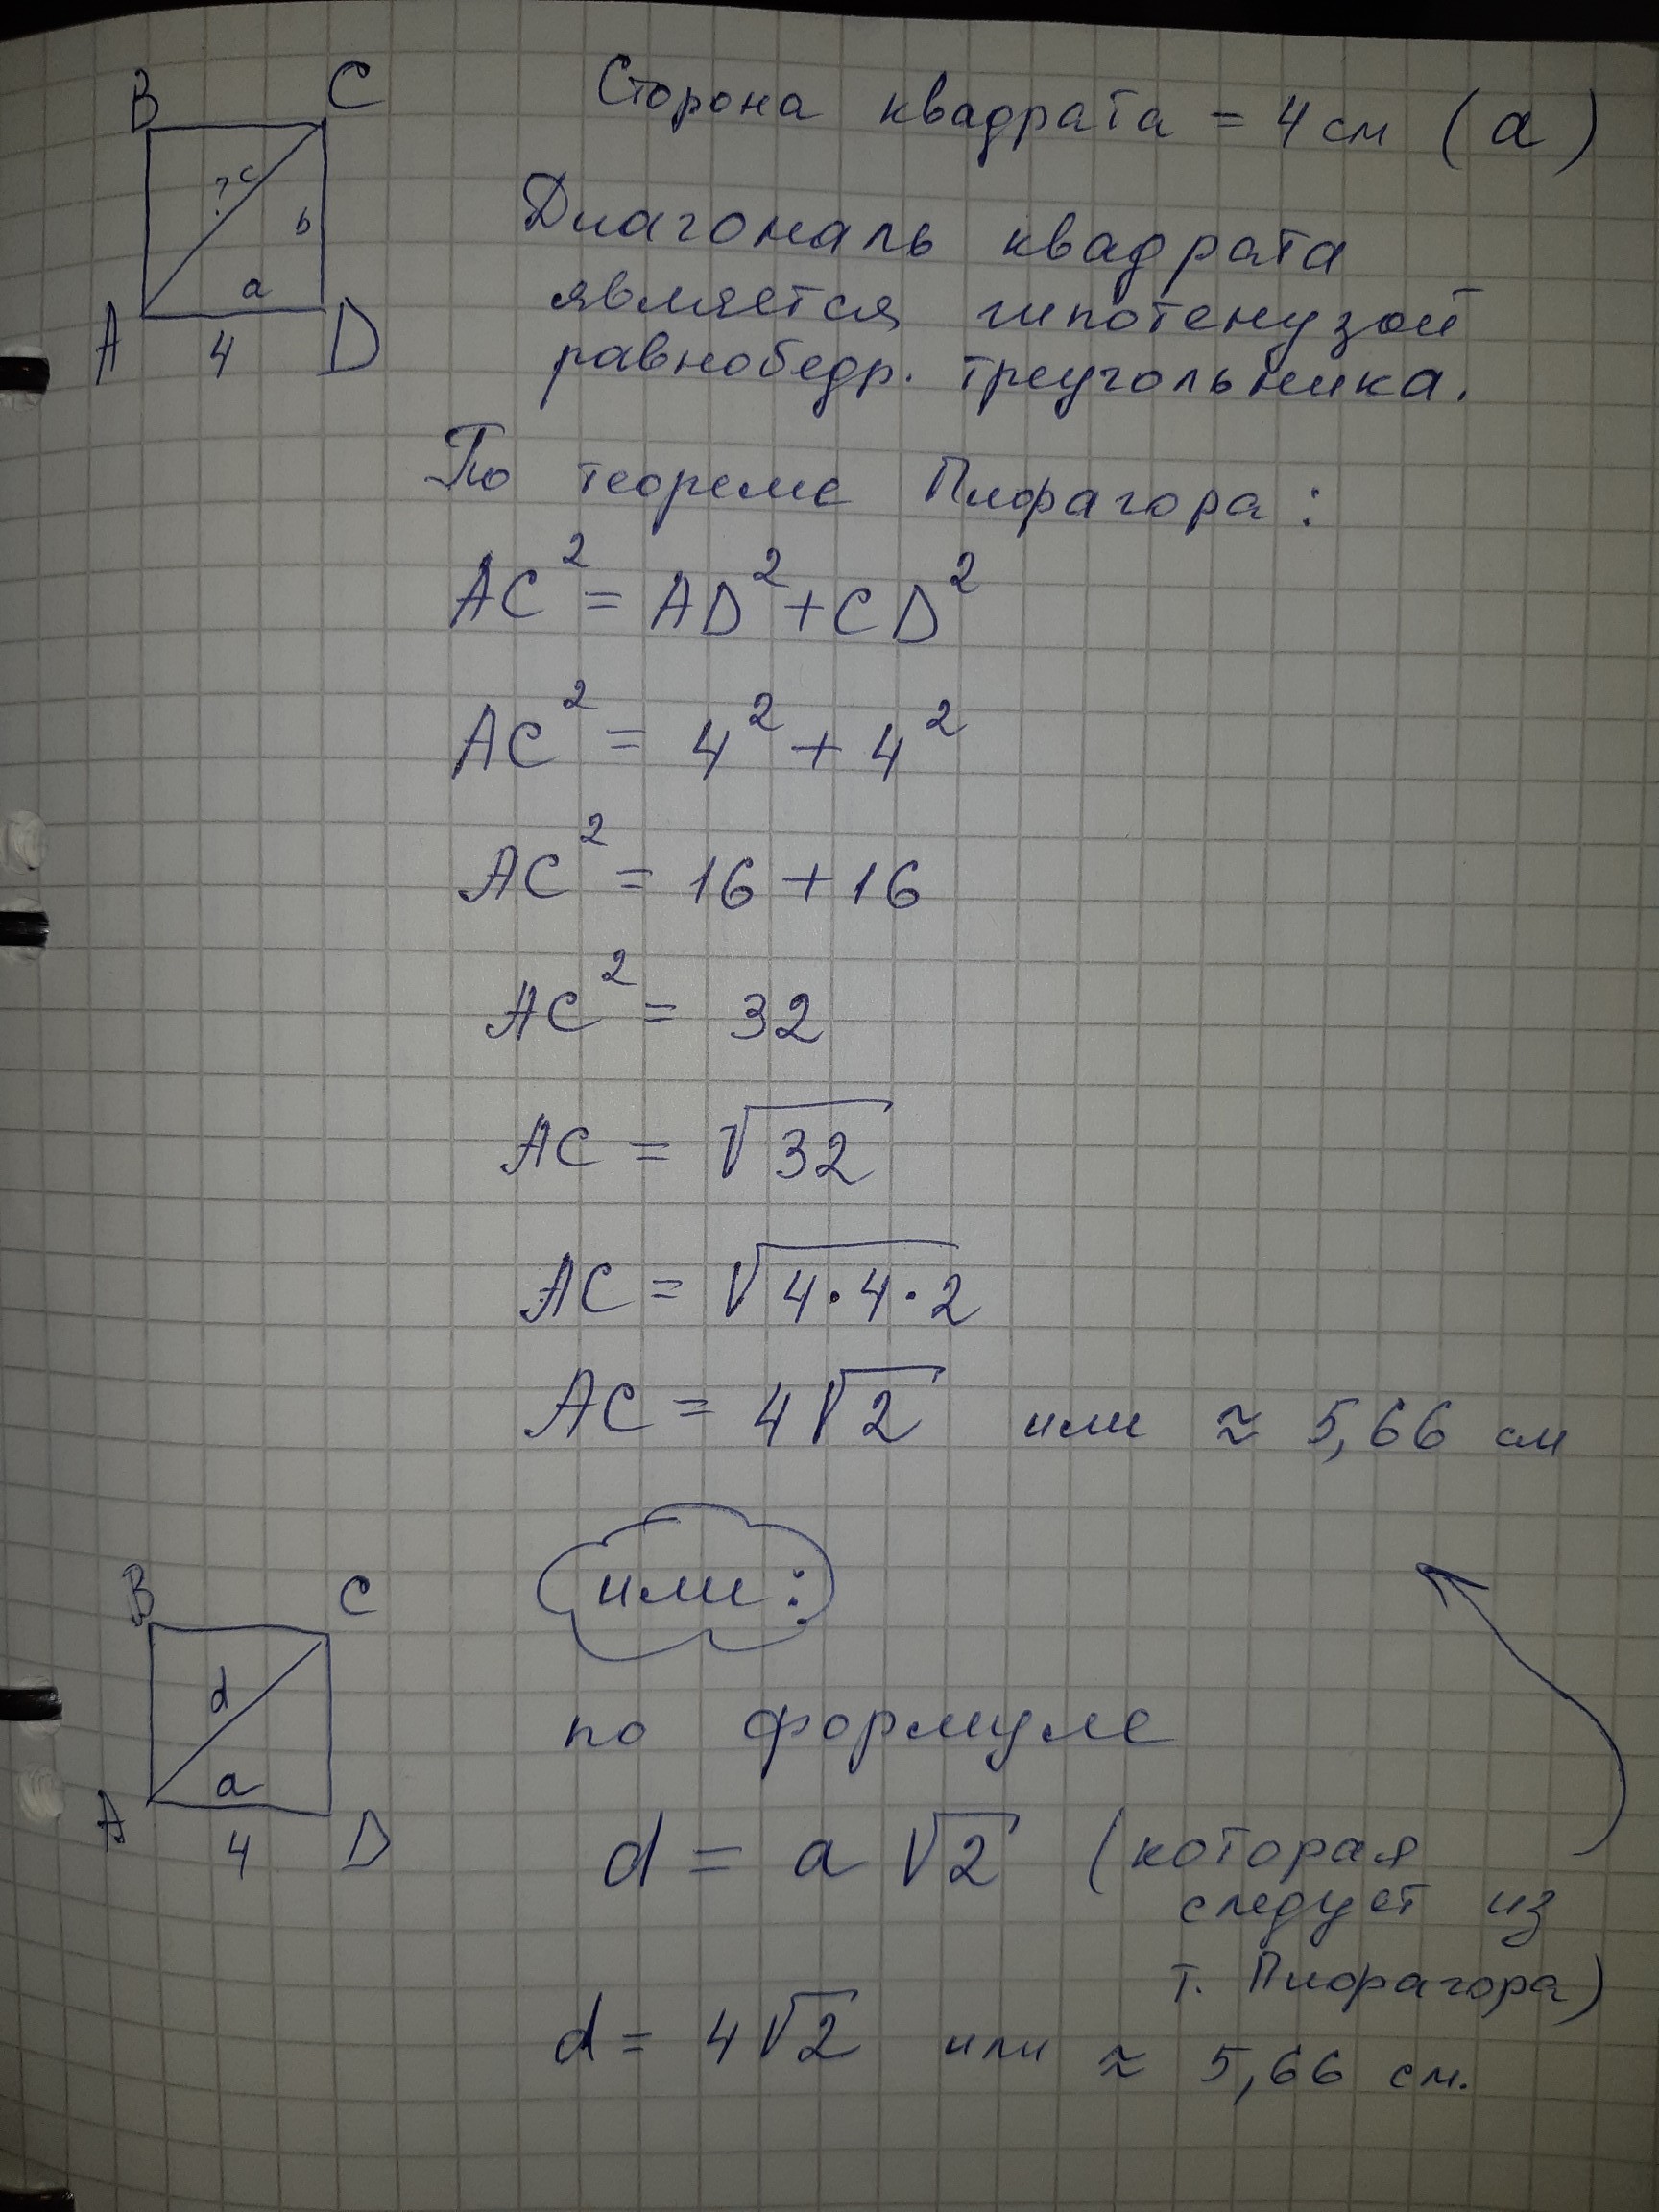 B C
? c
b
a
A 4 D
Сторона квадрата = 4 см (a)
Диагональ квадрата
является гипотенузой
равнобедр. треугольника.
По теореме Пифагора:
AC² = AD² + CD²
AC² = 4² + 4²
AC² = 16 + 16
AC² = 32
AC = √32
AC = √4·4·2
AC = 4√2 или ≈ 5,66 см
или:
B C
d
a
A 4 D
по формуле
d = a √2 (которая
следует из
т. Пифагора)
d = 4√2 или ≈ 5,66 см.